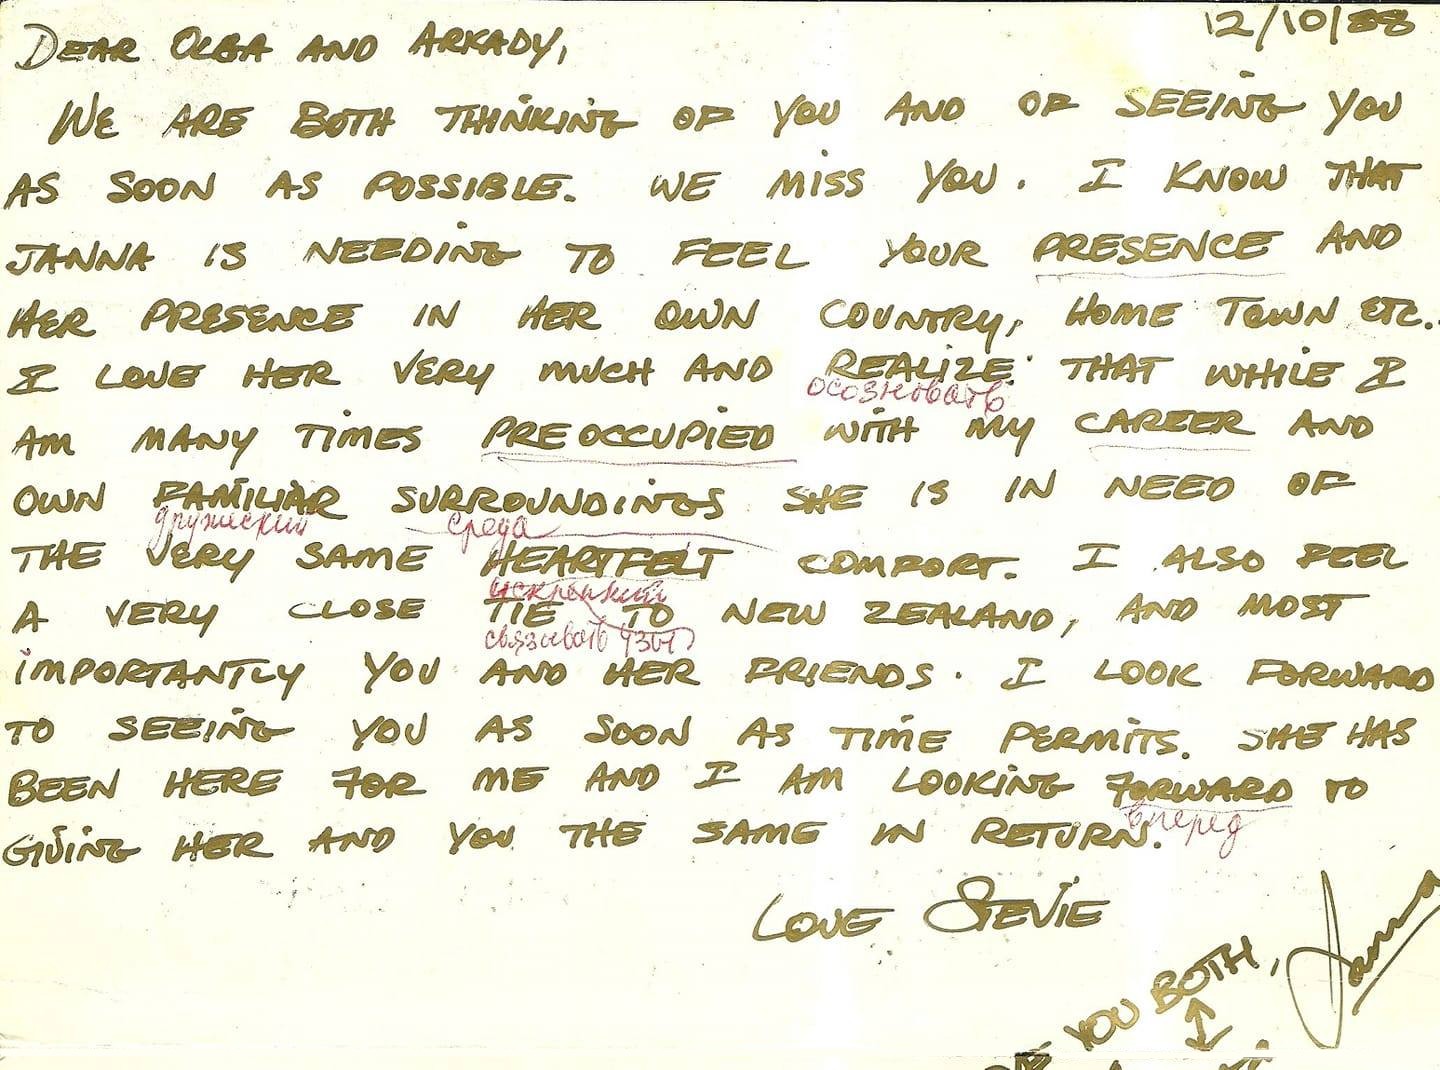 12/10/88
DEAR OLGA AND ARKADY,
WE ARE BOTH THINKING OF YOU AND OF SEEING YOU
AS SOON AS POSSIBLE. WE MISS YOU. I KNOW THAT
JANNA IS NEEDING TO FEEL YOUR PRESENCE AND
HER PRESENCE IN HER OWN COUNTRY, HOME TOWN ETC..
I LOVE HER VERY MUCH AND REALIZE THAT WHILE I
осознавать
AM MANY TIMES PREOCCUPIED WITH MY CAREER AND
OWN FAMILIAR SURROUNDINGS SHE IS IN NEED OF
дружеский среда
THE VERY SAME HEARTFELT COMFORT. I ALSO FEEL
искренний
A VERY CLOSE TIE TO NEW ZEALAND, AND MOST
связывать узы
IMPORTANTLY YOU AND HER FRIENDS. I LOOK FORWARD
TO SEEING YOU AS SOON AS TIME PERMITS. SHE HAS
BEEN HERE FOR ME AND I AM LOOKING FORWARD TO
вперед
GIVING HER AND YOU THE SAME IN RETURN.
LOVE STEVIE
YOU BOTH,
Janna